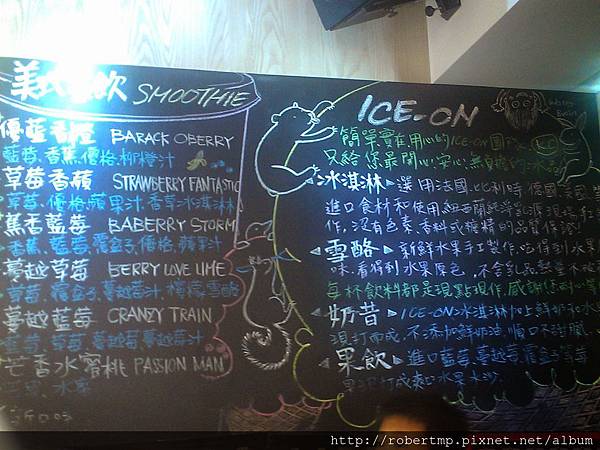 SMOOTHIE
優藍香橙 BARACK OBERRY
藍莓、香蕉、優格、柳橙汁
草莓香蘋 STRAWBERRY FANTASTIC
草莓、優格、蘋果汁、香草冰淇淋
蕉香藍莓 BABERRY STORM
香蕉、藍莓、覆盆子、優格、蘋果汁
蔓越草莓 BERRY LOVE LIME
草莓、覆盆子、蔓越莓汁、檸檬雪酪
蔓越藍莓 CRANZY TRAIN
芒香水蜜桃 PASSION MAN
ICE-ON
簡單實在,用心的ICE-ON
只給您最開心、安心、無負擔的
冰淇淋 選用法國、比利時、德國、美國
進口食材和使用紐西蘭純
作,沒有色素、香料或糖精的品質保證!
雪酪 新鮮水果手工製作,吃得到水果
味,看得到水果原色,不含乳品
每杯飲料都是現點現作,感謝您耐心等
奶昔 ICE-ON冰淇淋加上鮮奶和冰
現打而成,不添加鮮奶油,順口不甜膩
果飲 進口藍莓、蔓越莓、覆盆子、草莓
http://robertmp.pixnet.net/album